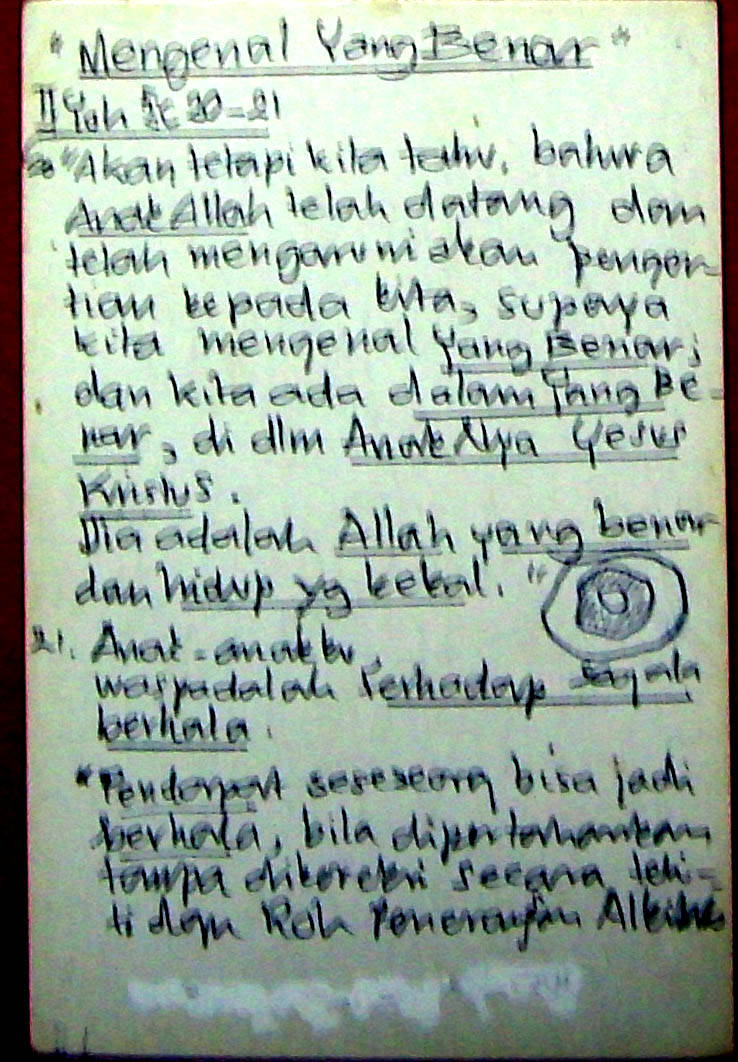 "Mengenal Yang Benar"
II Yoh 5: 20-21
20 "Akan tetapi kita tahu, bahwa
Anak Allah telah datang dan
telah mengaruniakan penger-
tian kepada kita, supaya
kita mengenal Yang Benar;
dan kita ada dalam Yang Be-
nar, di dlm Anak Nya Yesus
Kristus.
Dia adalah Allah yang benar
dan hidup yg kekal."
21. Anak-anakku,
waspadalah terhadap segala
berhala.
"Pendapat seseorg bisa jadi
berhala, bila dipertahankan
tanpa dikoreksi secara teli-
ti dgn Roh Penerangan Alkitab